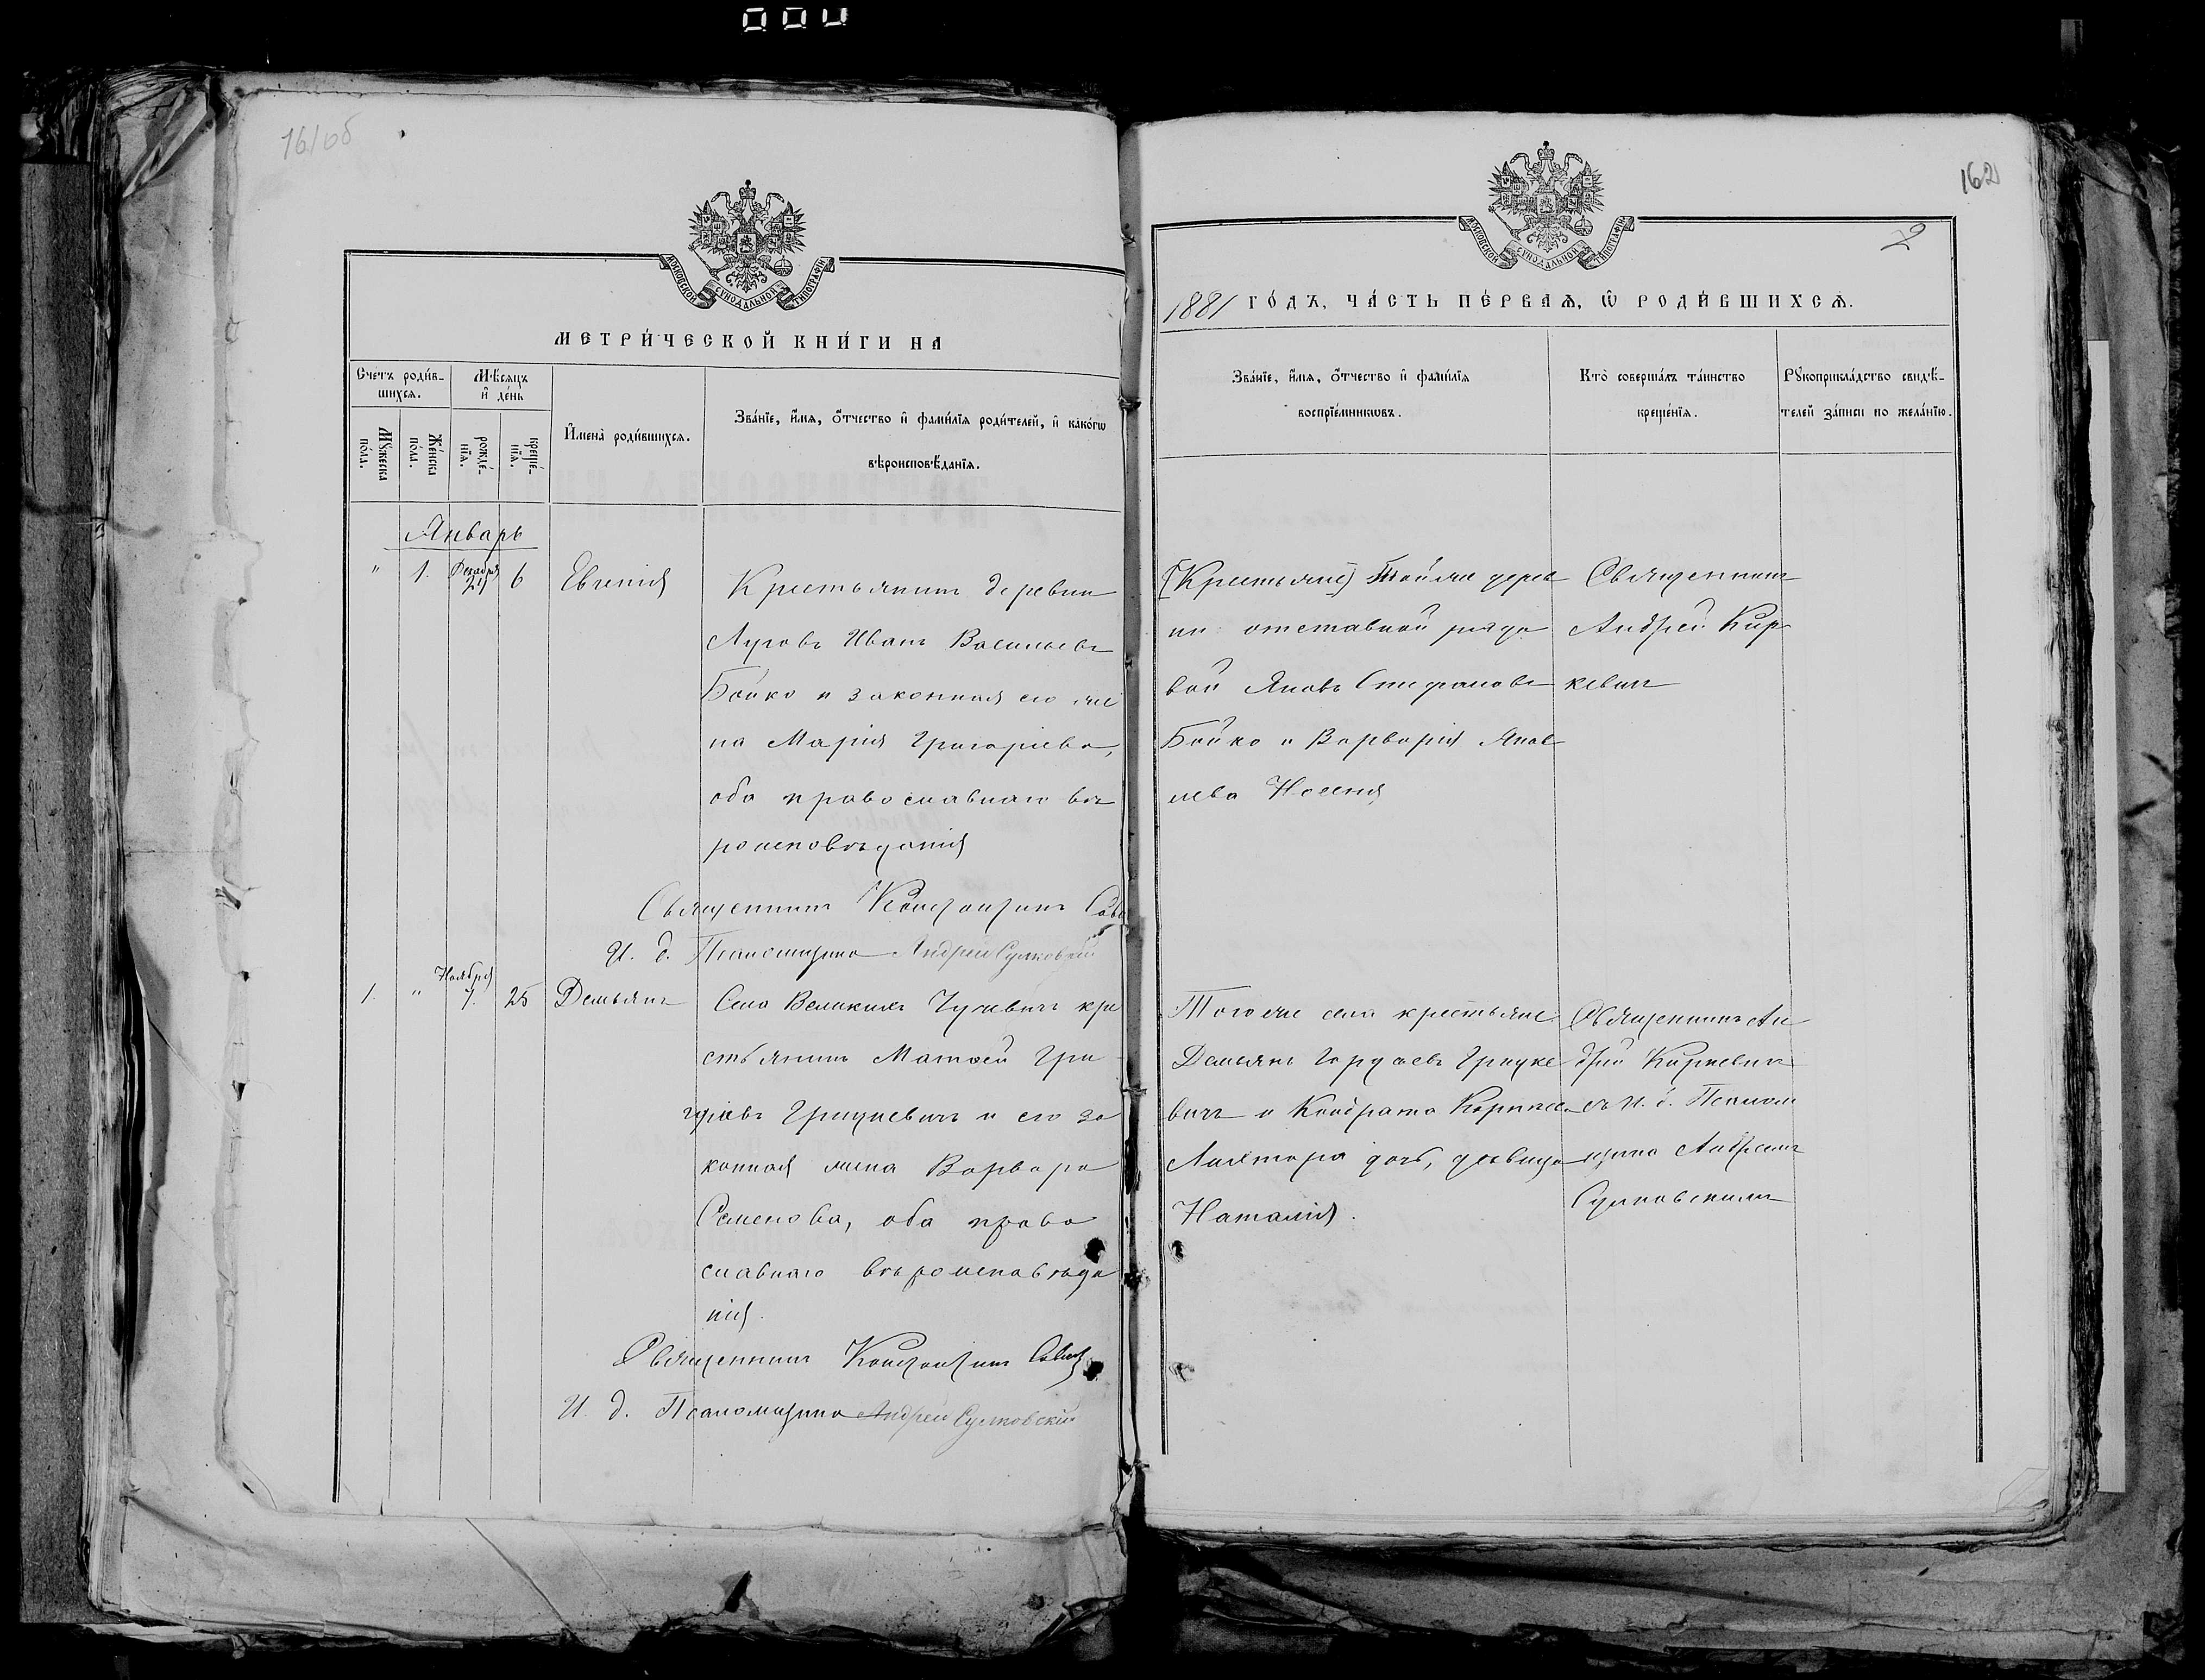 000
161об
162
2
МОСКОВСКОЙ СѴНОДАЛЬНОЙ ТИПОГРАФІИ
МЕТРИ́ЧЕСКОЙ КНИ́ГИ НА
Счетъ роди́в-
шихся.
Мѣ́сяцъ
и҆ де́нь
Мꙋ́жеска
по́ла.
Же́нска
пола.
рожде́-
нїя.
креще́-
нїя.
И҆мена̀ роди́вшихся.
Зва́нїе, и҆́мя, ѻ҆́тчество и҆ фами́лїя роди́телей, и҆ како́гѡ
вѣроисповѣ́данїя.
Январь
" 1. Декабря 24 6 Евгенія
Крестьянинъ деревни
Луговъ Иванъ Васильевъ
Бойко и законная его же
на Марія Григоріева,
оба православнаго вѣ
роисповѣданія
Священникъ Константинъ
И. д. Псаломщика Андрей Сулковскій
1. " Ноября 7. 25 Демьянъ
Села Великихъ Чучевичъ кре
стьянинъ Матѳей Гри
горіевъ Грицкевичъ и его за
конная жена Варвара
Семенова, оба право
славнаго вѣроисповѣда
нія.
Священникъ Константинъ
И. д. Псаломщика Андрей Сулковскій
МОСКОВСКОЙ СѴНОДАЛЬНОЙ ТИПОГРАФІИ
1881 ГО́ДЪ, ЧА́СТЬ ПЕ́РВАѦ, Ѡ҆ РОДИ́ВШИХСѦ.
Зва́нїе, и҆́мя, ѻ҆́тчество и҆ фами́лїя
воспрїе́мникѡвъ.
Кто̀ соверша́лъ та́инство
креще́нїя.
Рꙋкоприкла́дство свидѣ́-
телей за́писи по жела́нїю.
(Крестьяне) Той же дерев
ни отставной рядо
вой Яковъ Стефановъ
Бойко и Варвария Яков
лева
Священникъ
Андрей Кир
кевичъ
Того же села крестьяне
Демьянъ Грицке
вичъ и Кондрата
дочь, дѣвица
Наталія.
Священникъ Ан
дрей Киркевичъ
съ И. д. Псалом
щика Андреемъ
Сулковскимъ